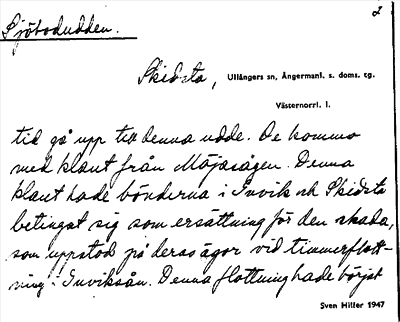 Sjöbodudden.
2
Skidsta, Ullångers sn, Ångermanl. s. doms. tg.
Västernorrl. l.
tid gå upp till denna udde. De kommo
med klant från Möjasågen. Denna
klant hade bönderna i Invik och Skidsta
betingat sig som ersättning för den skada,
som uppstod på deras ägor vid timmerflott-
ning i Inviksån. Denna flottning hade börjat
Sven Hiller 1947